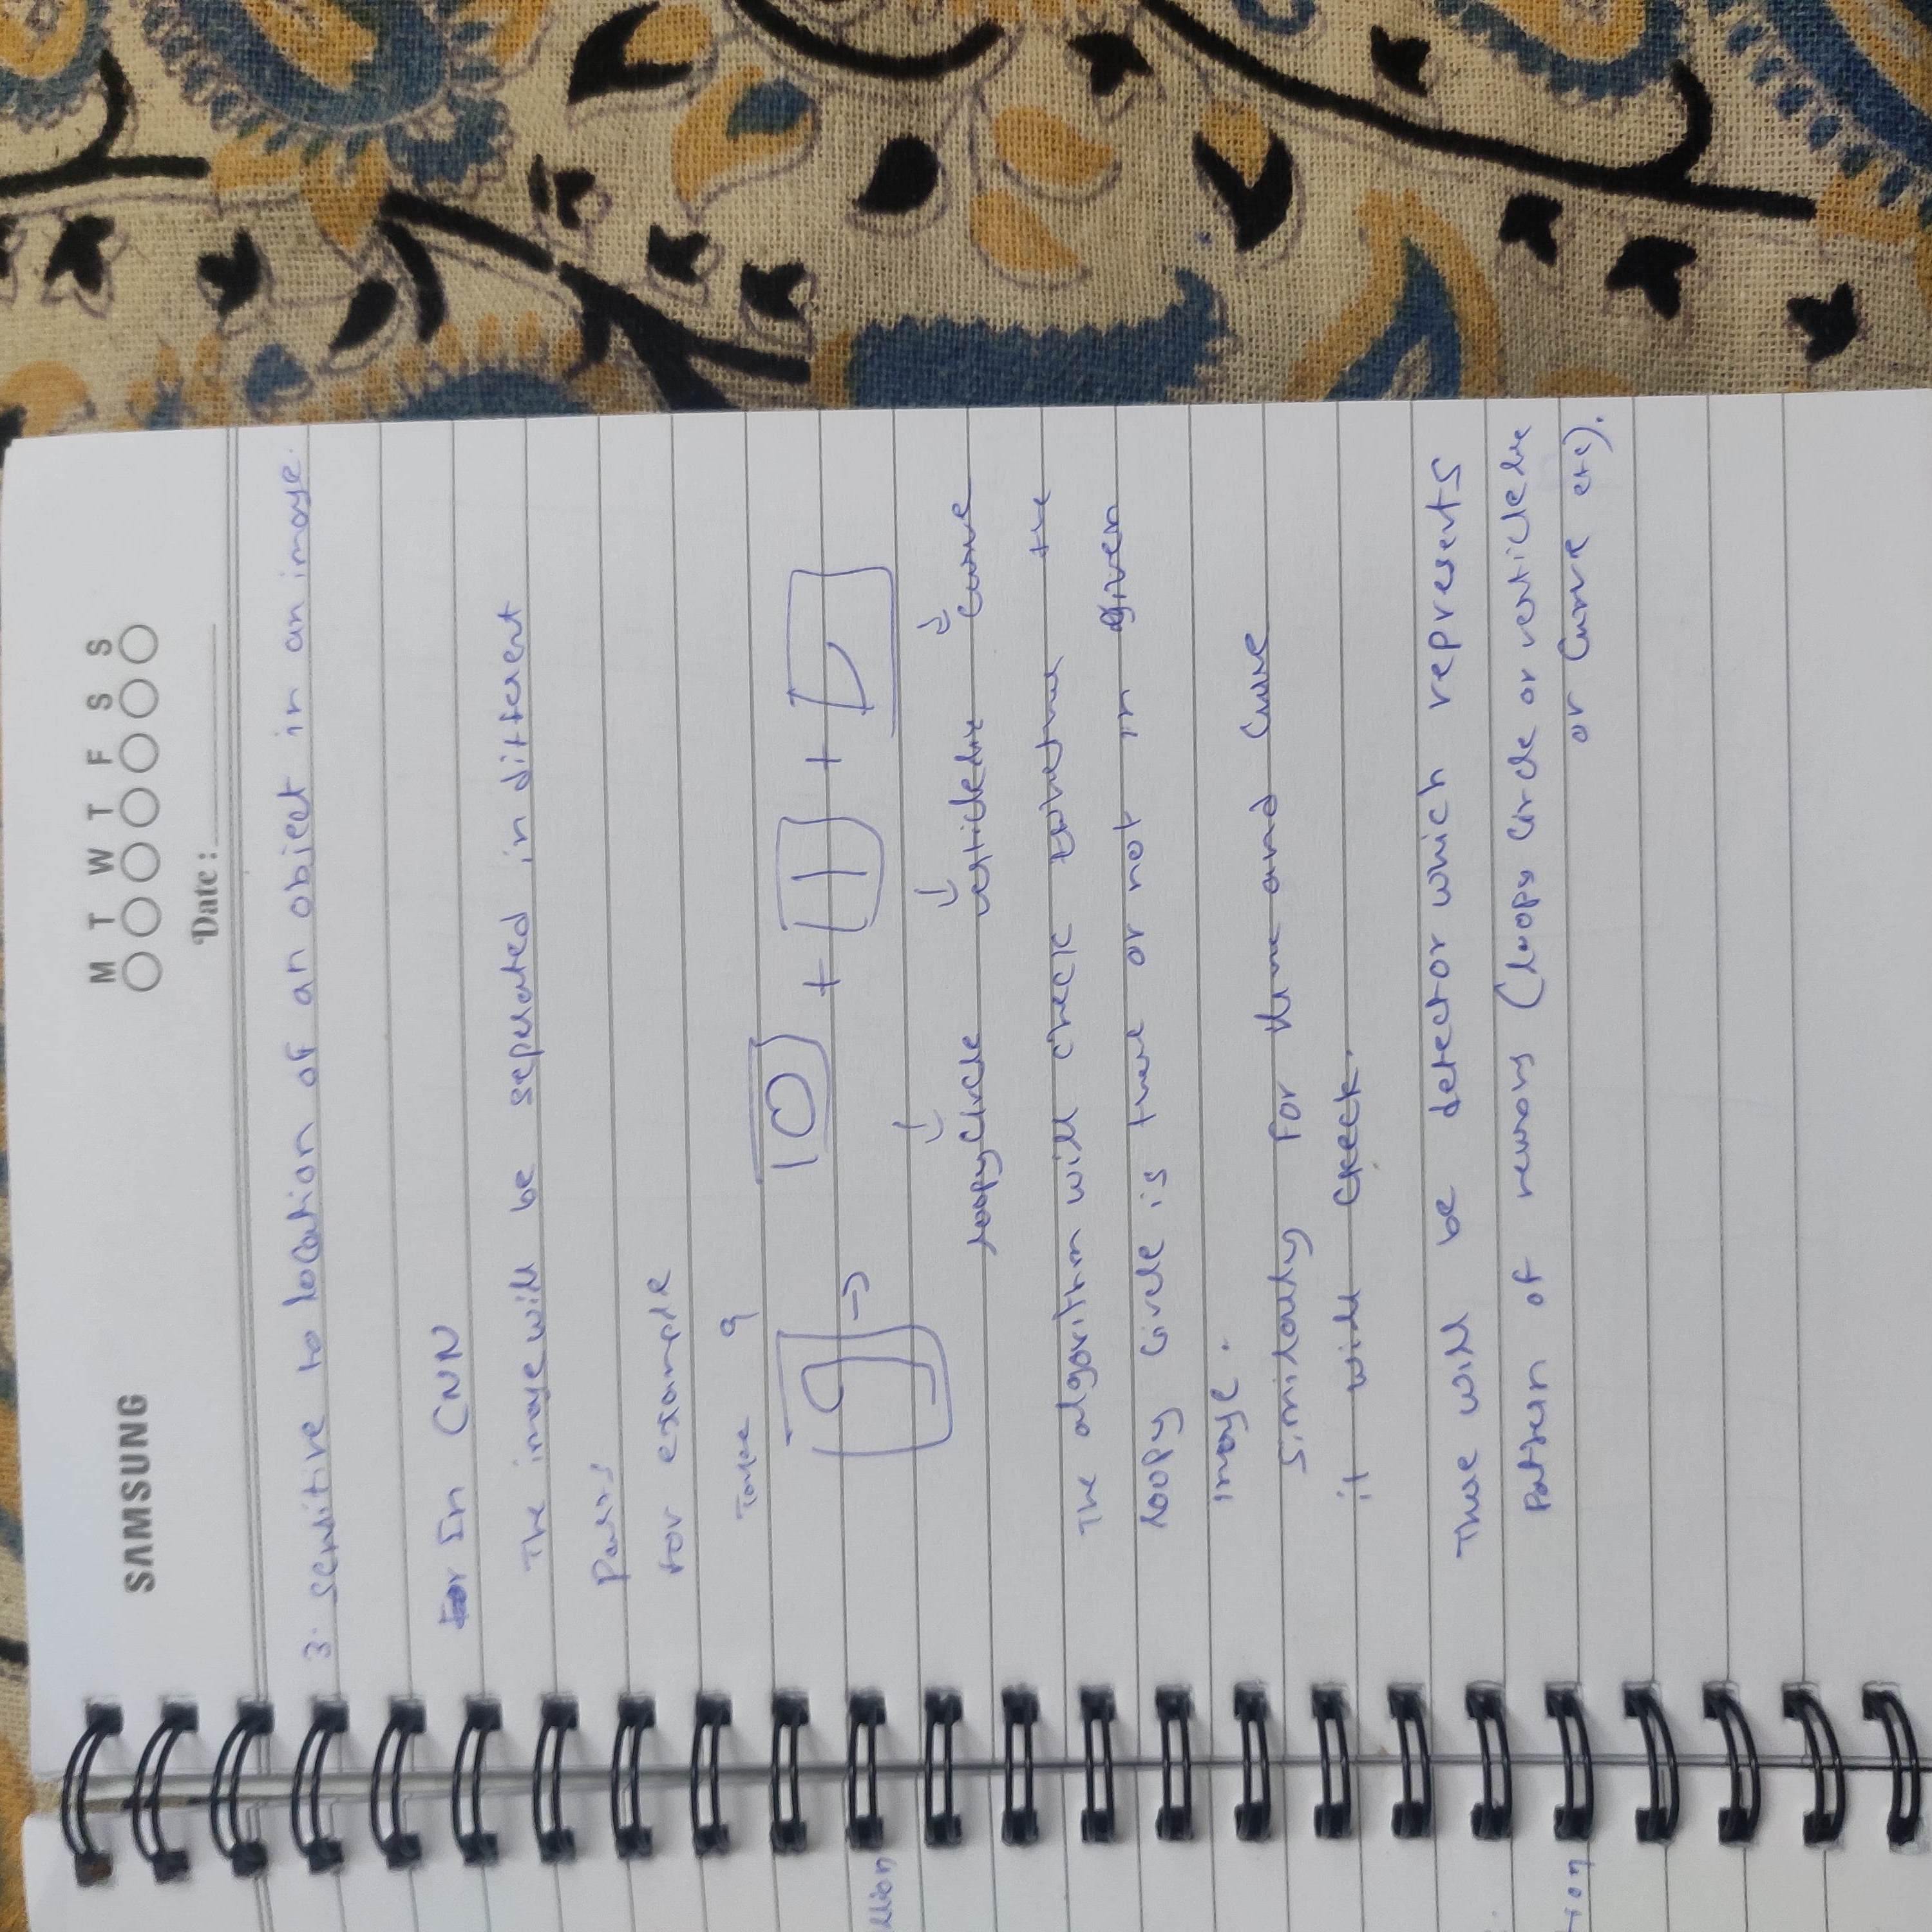 SAMSUNG
M T W T F S S
Date :
3. sensitive to location of an object in an image.
In CNN
The image will be seperated in different
Parts
for example
Take 9
9 → O + | +
loopy Circle verticle line curve
The algorithm will check whether the
loopy circle is there or not in given
image.
similarly for line and Curve
it will check.
There will be detector which represents
pattern of (loopy circle or verticle line
or Curve etc).
tion